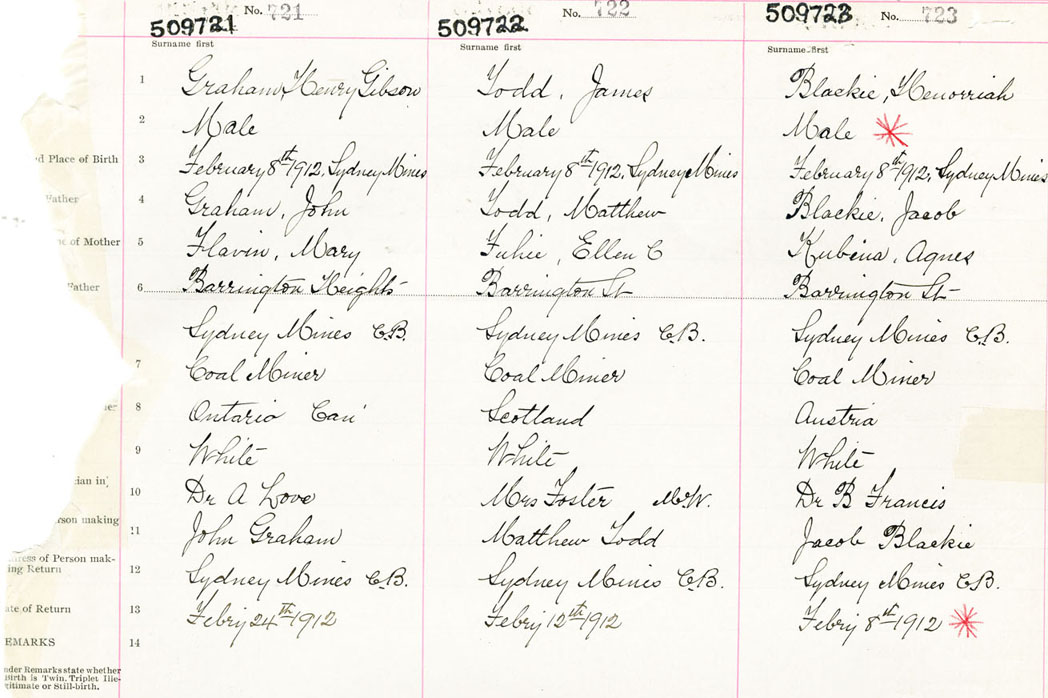 No. 721
509721
No. 722
509722
No. 723
509723
Surname first
Surname first
Surname first
1 Graham, Henry Gibson
Todd, James
Blackie, Henorriah
2 Male
Male
Male
d Place of Birth 3 February 8th 1912, Sydney Mines
February 8th 1912, Sydney Mines
February 8th 1912, Sydney Mines
Father 4 Graham, John
Todd, Matthew
Blackie, Jacob
e of Mother 5 Flavin, Mary
Fuhie, Ellen C
Kubena, Agnes
Father 6 Barrington Heights
Barrington St
Barrington St
Sydney Mines C.B.
Sydney Mines C.B.
Sydney Mines C.B.
7 Coal Miner
Coal Miner
Coal Miner
her 8 Ontario Can
Scotland
Austria
9 White
White
White
cian in
10 Dr A Love
Mrs Foster M.W.
Dr B Francis
erson making
11 John Graham
Matthew Todd
Jacob Blackie
ress of Person mak-
ing Return
12 Sydney Mines C.B.
Sydney Mines C.B.
Sydney Mines C.B.
ate of Return 13 Febry 24th 1912
Febry 12th 1912
Febry 8th 1912
EMARKS 14
nder Remarks state whether
Birth is Twin, Triplet Ille-
gitimate or Still-birth.